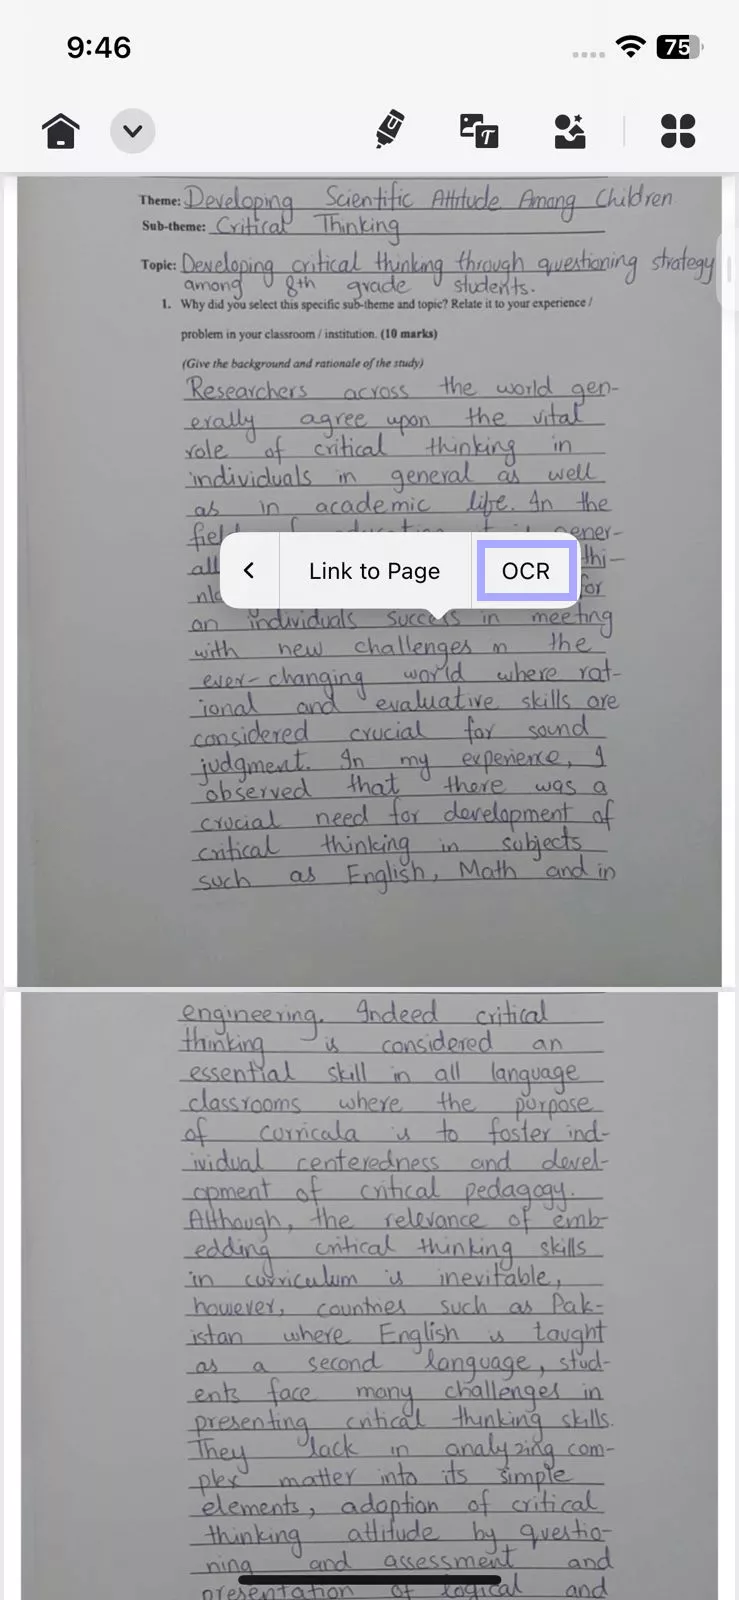 9:46
75
Theme: Developing Scientific Attitude Among Children
Sub-theme: Critical Thinking
Topic: Developing critical thinking through questioning strategy
among 8th grade students.
1. Why did you select this specific sub-theme and topic? Relate it to your experience /
problem in your classroom / institution. (10 marks)
(Give the background and rationale of the study)
Researchers across the world gen-
erally agree upon the vital
role of critical thinking in
individuals in general as well
as in academic life. In the
fiel ener-
all Link to Page OCR thi-
for
an individuals success in meeting
with new challenges in the
ever-changing world where rat-
ional and evaluative skills are
considered crucial for sound
judgment. In my experience, I
observed that there was a
crucial need for development of
critical thinking in subjects
such as English, Math and in
engineering. Indeed critical
thinking is considered an
essential skill in all language
classrooms where the purpose
of curricala is to foster ind-
ividual centeredness and devel-
opment of critical pedagogy.
Although, the relevance of emb-
edding critical thinking skills
in curriculum is inevitable,
however, countries such as Pak-
istan where English is taught
as a second language, stud-
ents face many challenges in
presenting critical thinking skills.
They lack in analyzing com-
plex matter into its simple
elements, adoption of critical
thinking attitude by questio-
ning and assessment and
presentation of logical and